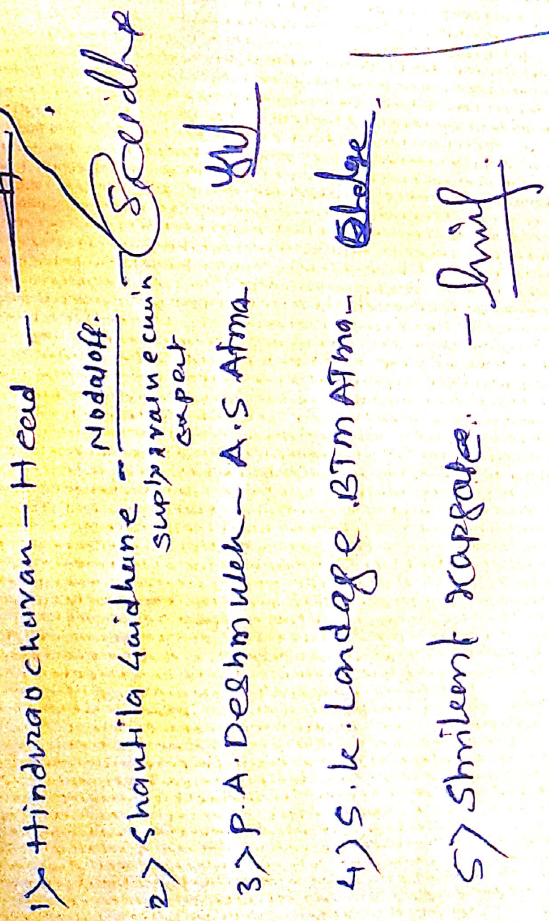 1> Hindurao chavan - Head -
2> Shantila Gaidhane - Nodal off.
supply value chain
expert
3> P.A. Deshmukh - A.S Atma
4> S.K. Landage BTM ATma -
5> Shrikant Kapgate. -